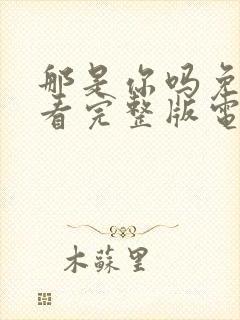 那是你吗免
看完整版電
木蘇里